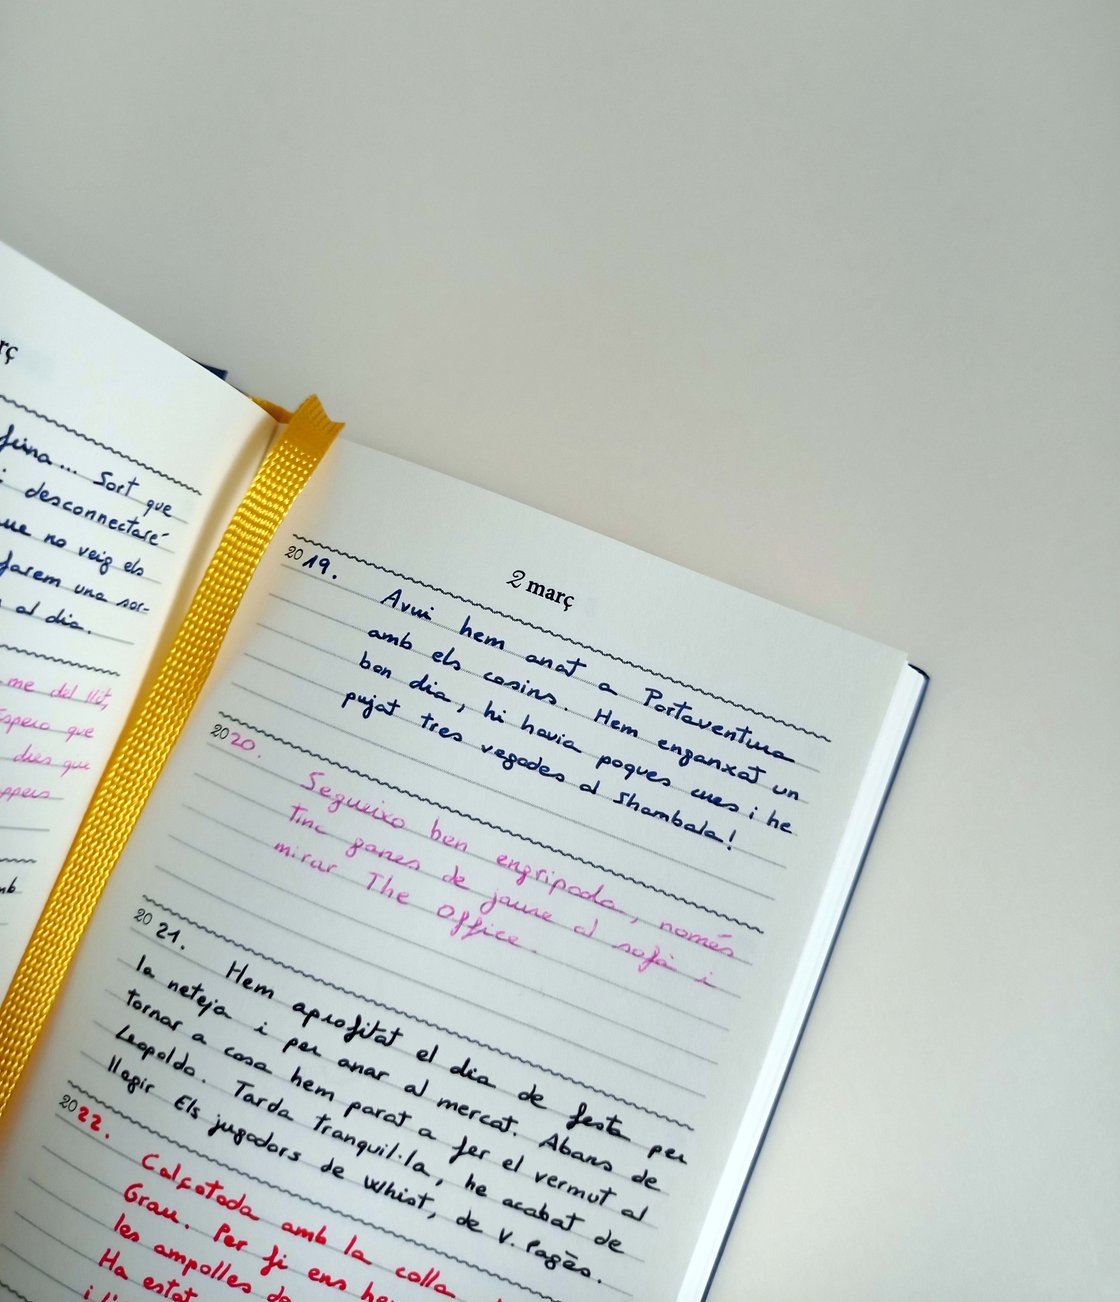 rç
feina... Sort que
i desconnectaré
que no veig els
farem una sor-
al dia.
me del llit,
Espero que
dies que
nb
2 març
2019.
Avui hem anat a Portaventura
amb els cosins. Hem enganxat un
bon dia, hi havia poques cues i he
pujat tres vegades al Shambala!
2020.
Segueixo ben engripada, només
tinc ganes de jaure al sofà i
mirar The Office.
2021.
Hem aprofitat el dia de festa per
la neteja i per anar al mercat. Abans de
tornar a casa hem parat a fer el vermut al
Leopoldo. Tarda tranquil·la, he acabat de
llegir Els jugadors de Whist, de V. Pagès.
2022.
Calçotada amb la colla
Grau. Per fi ens he
les ampolles de
Ha estat